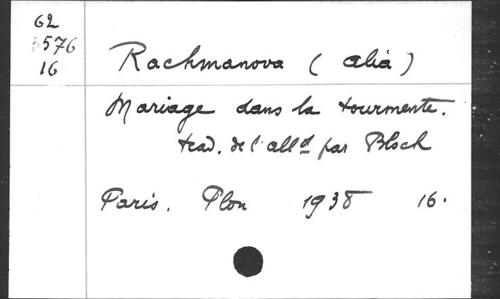 62
5576
16
Rachmanova (Alia)
Mariage dans la tourmente.
trad. de l'alld par Bloch
Paris. Plon 1938 16.